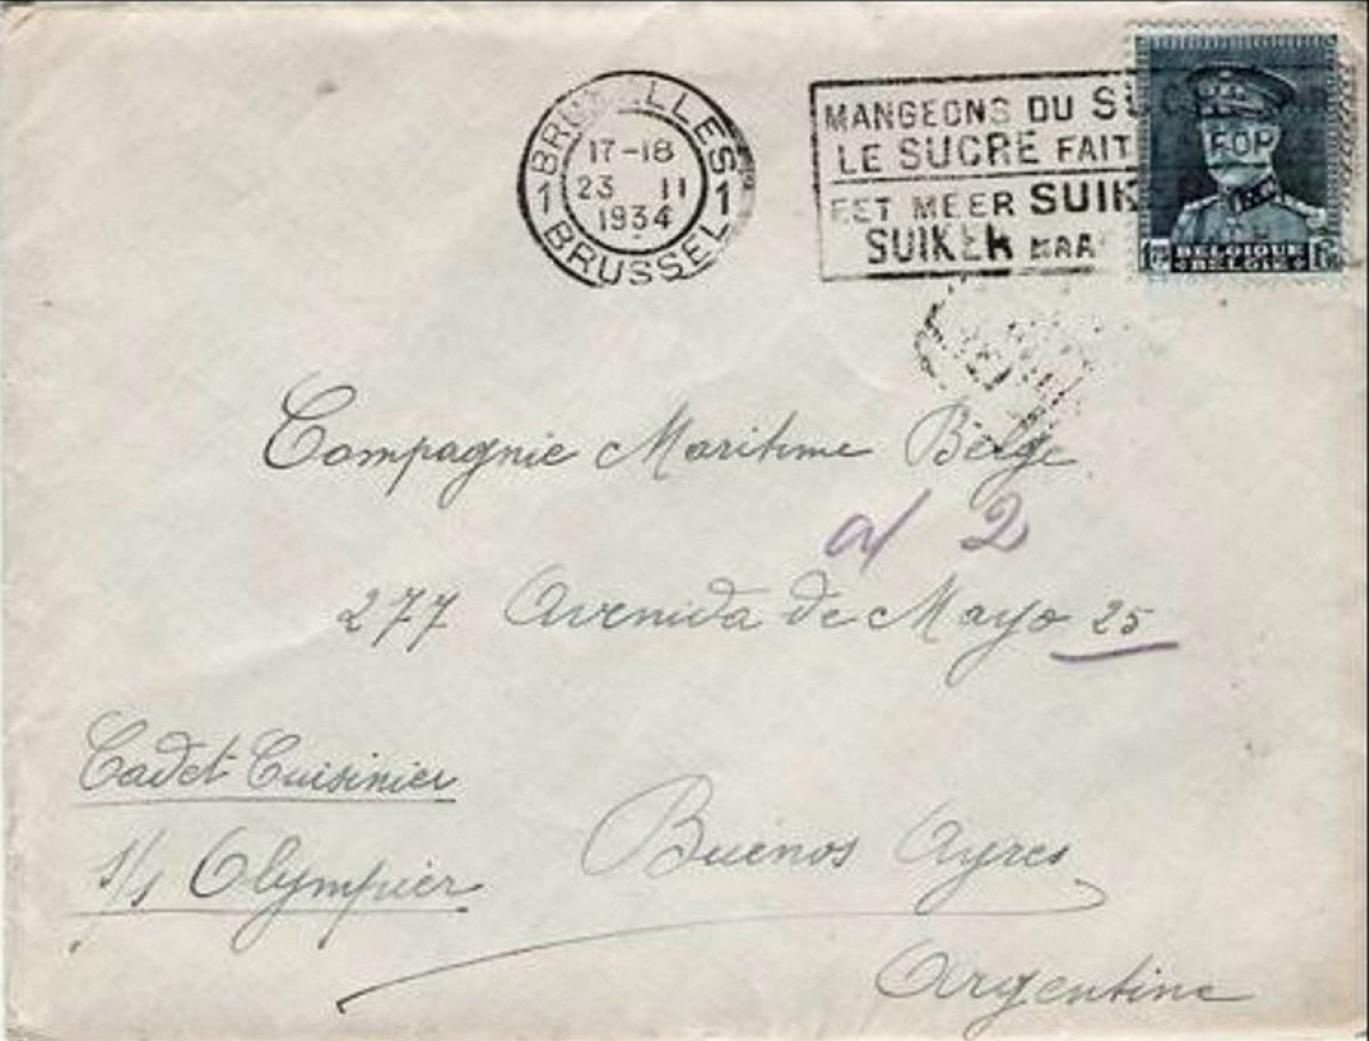 BRUXELLES
17-18
1 23 11 1
1934
BRUSSEL
MANGEONS DU
LE SUCRE FAIT
EET MEER SUIK
SUIKER
BELGIQUE
BELGIË
Compagnie Maritime Belge
a/ 2
277 Avenida de Mayo 25
Cadet Cuisinier
s/s Olympier
Buenos Ayres
Argentine